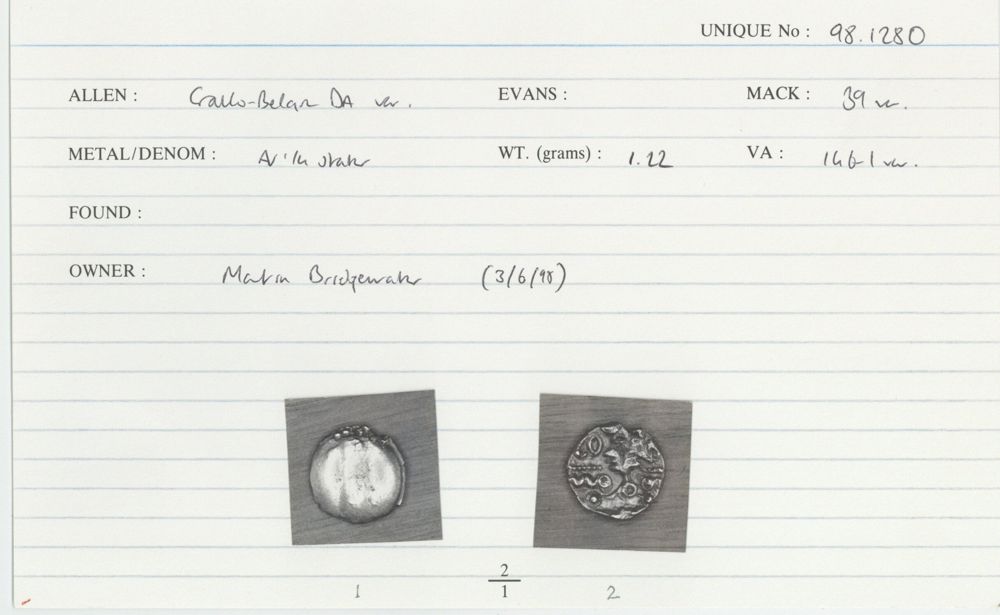 UNIQUE No : 98.1280
ALLEN : Gallo-Belgic DA var. EVANS : MACK : 39 var.
METAL/DENOM : AV 1/4 stater WT. (grams) : 1.22 VA : 146-1 var.
FOUND :
OWNER : Martin Bridgewater (3/6/98)
2
1 1 2